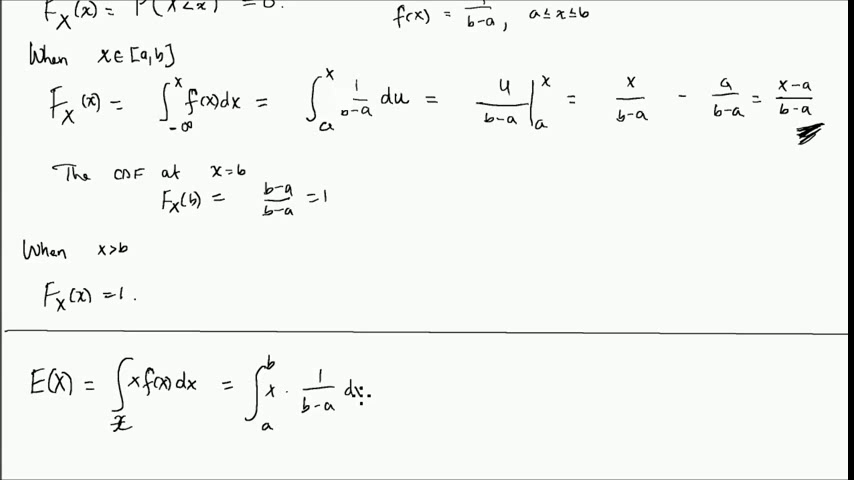 F_X(x) = P(X<x) = 0.
f(x) = 1/(b-a), a≤x≤b
When x∈[a,b]
F_X(x) = ∫_{-∞}^{x} f(x)dx = ∫_{a}^{x} 1/(b-a) du = u/(b-a) |_{a}^{x} = x/(b-a) - a/(b-a) = (x-a)/(b-a)
The CDF at x=b
F_X(b) = (b-a)/(b-a) = 1
When x>b
F_X(x) = 1.
E(X) = ∫_{x} x f(x) dx = ∫_{a}^{b} x · 1/(b-a) dx.